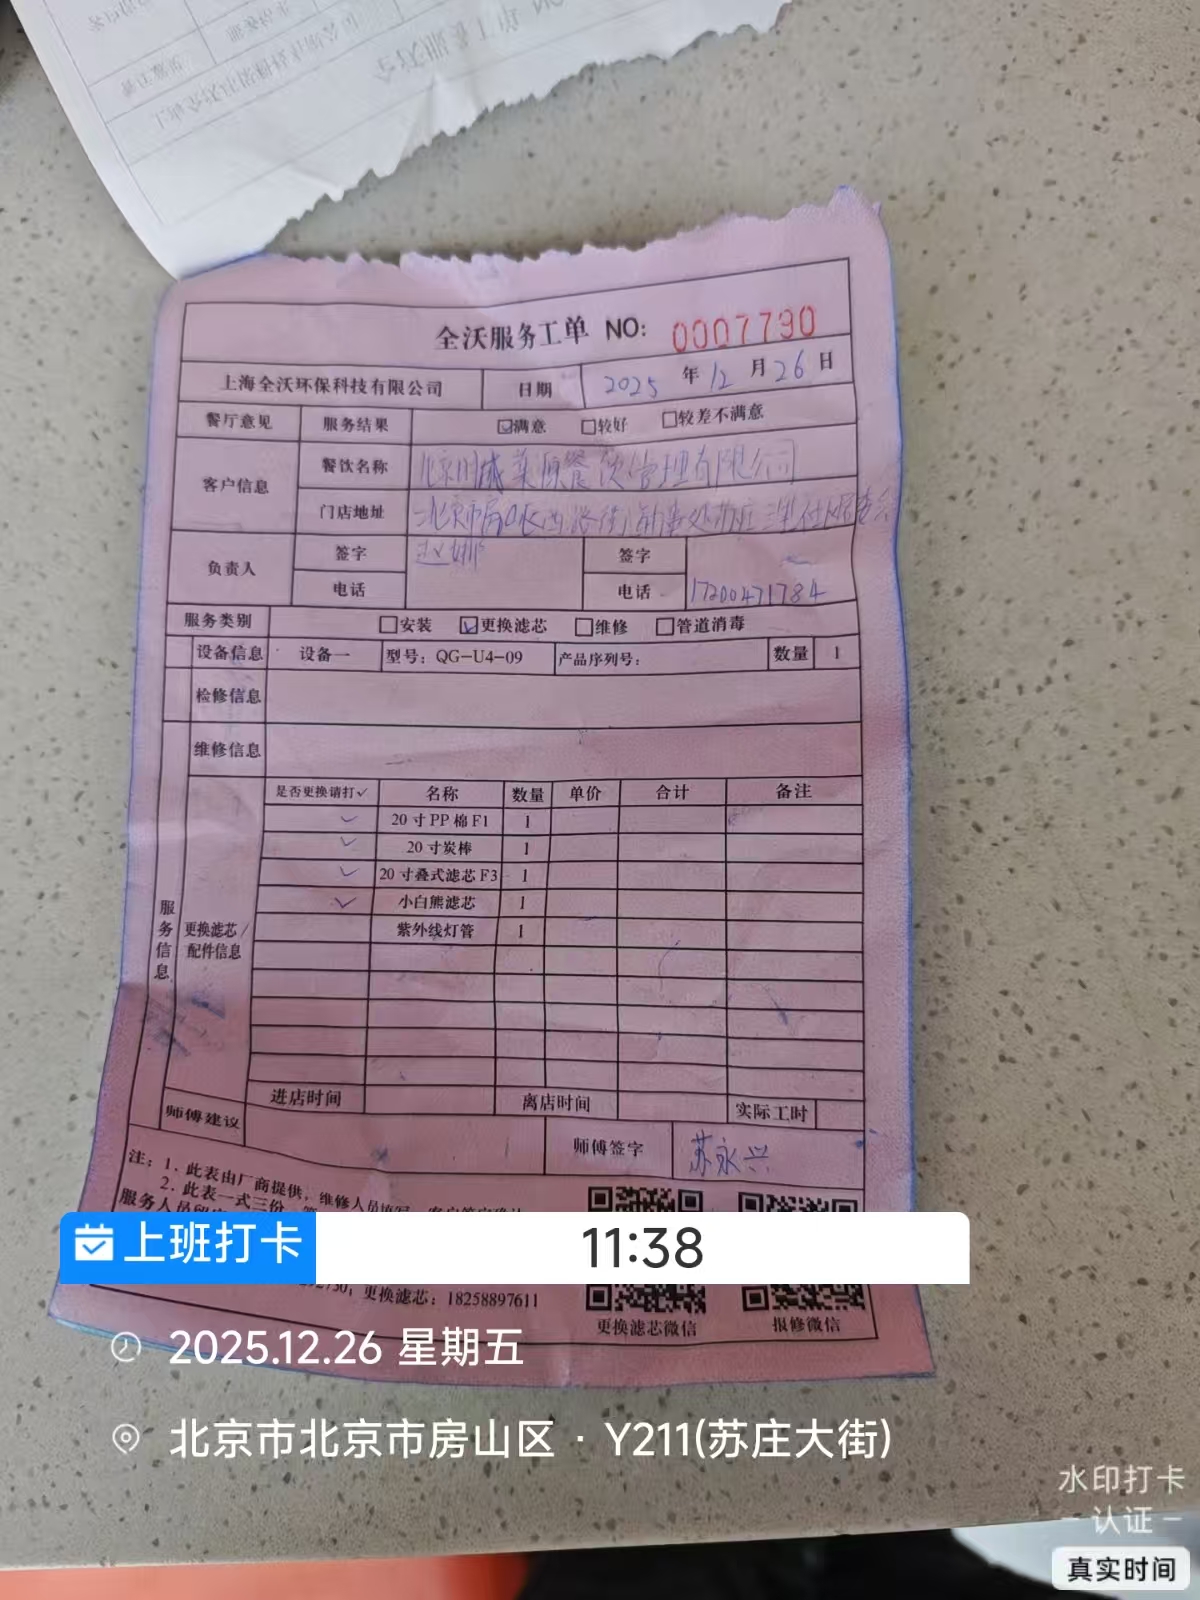 全沃服务工单 NO: 0007790
上海全沃环保科技有限公司 日期 2025 年 12 月 26 日
餐厅意见 服务结果 ☑满意 □较好 □较差不满意
客户信息 餐饮名称 餐饮管理有限公司
门店地址
负责人 签字 赵娜 签字
电话 电话 17200471784
服务类别 □安装 ☑更换滤芯 □维修 □管道消毒
设备信息 设备一 型号: QG-U4-09 产品序列号: 数量 1
检修信息
维修信息
服务信息
更换滤芯/配件信息
是否更换请打✓ 名称 数量 单价 合计 备注
✓ 20寸PP棉F1 1
✓ 20寸炭棒 1
✓ 20寸叠式滤芯F3 1
✓ 小白熊滤芯 1
紫外线灯管 1
进店时间 离店时间 实际工时
师傅建议 师傅签字 苏永兴
注: 1. 此表由厂商提供, 维修人员填写
2. 此表一式三份
服务人员
更换滤芯: 18258897611
更换滤芯微信 报修微信
上班打卡 11:38
2025.12.26 星期五
北京市北京市房山区 · Y211(苏庄大街)
水印打卡
认证
真实时间